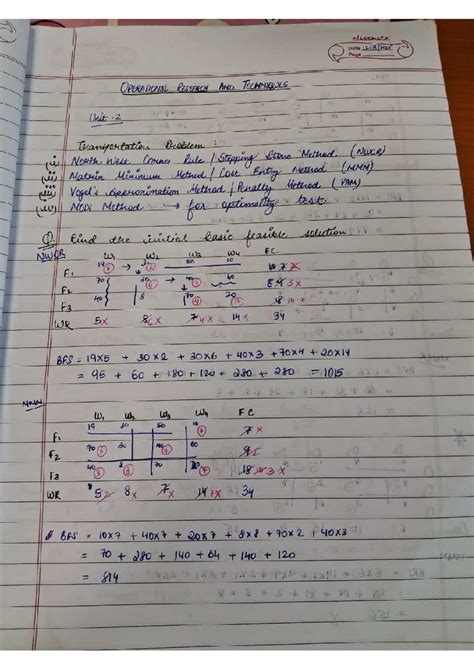 classmate
Date
Page
OPERATIONAL RESEARCH AND TECHNIQUES
Unit-2
Transportation Problem :
North West Corner Rule / Stepping Stone Method (NWCR)
Matrix Minimum Method / Cost Entry Method (MMM)
Vogel's Approximation Method / Penalty Method (VAM)
MODI Method → for optimality test.
Q. Find the initial basic feasible solution
NWCR
W1 W2 W3 W4 FC
F1 19 (5) → 30 (2) 50 10 7
F2 70 30 (6) → 40 (3) 60 9 3 x
F3 40 8 70 (4) → 20 (14) 18
WR 5x 8 6x 7 4x 14x 34
BFS = 19x5 + 30x2 + 30x6 + 40x3 + 70x4 + 20x14
= 95 + 60 + 180 + 120 + 280 + 280 = 1015
MMM
W1 W2 W3 W4 FC
F1 19 30 50 10 (7) 7x
F2 70 (2) 30 40 (7) 60 9 2
F3 40 (3) 8 (8) 70 20 (7) 18 10 3 x
WR 5 2 8x 7x 14 7x 34
BFS = 10x7 + 40x7 + 20x7 + 8x8 + 70x2 + 40x3
= 70 + 280 + 140 + 64 + 140 + 120
= 814